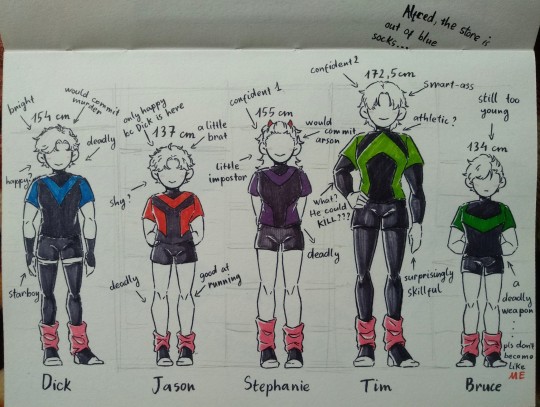 Alfred, the store is
out of blue
socks...
bright
would commit
murder
154 cm
deadly
happy?
starboy
Dick
only happy
bc Dick is here
137 cm
a little
brat
shy?
deadly
good at
running
Jason
confident 1
155 cm
would
commit
arson
little
impostor
deadly
Stephanie
confident 2
172,5cm
smart-ass
athletic?
what?
He could
KILL???
surprisingly
skillful
Tim
still too
young
134 cm
a
deadly
weapon
...
pls don't
become
like
ME
Bruce